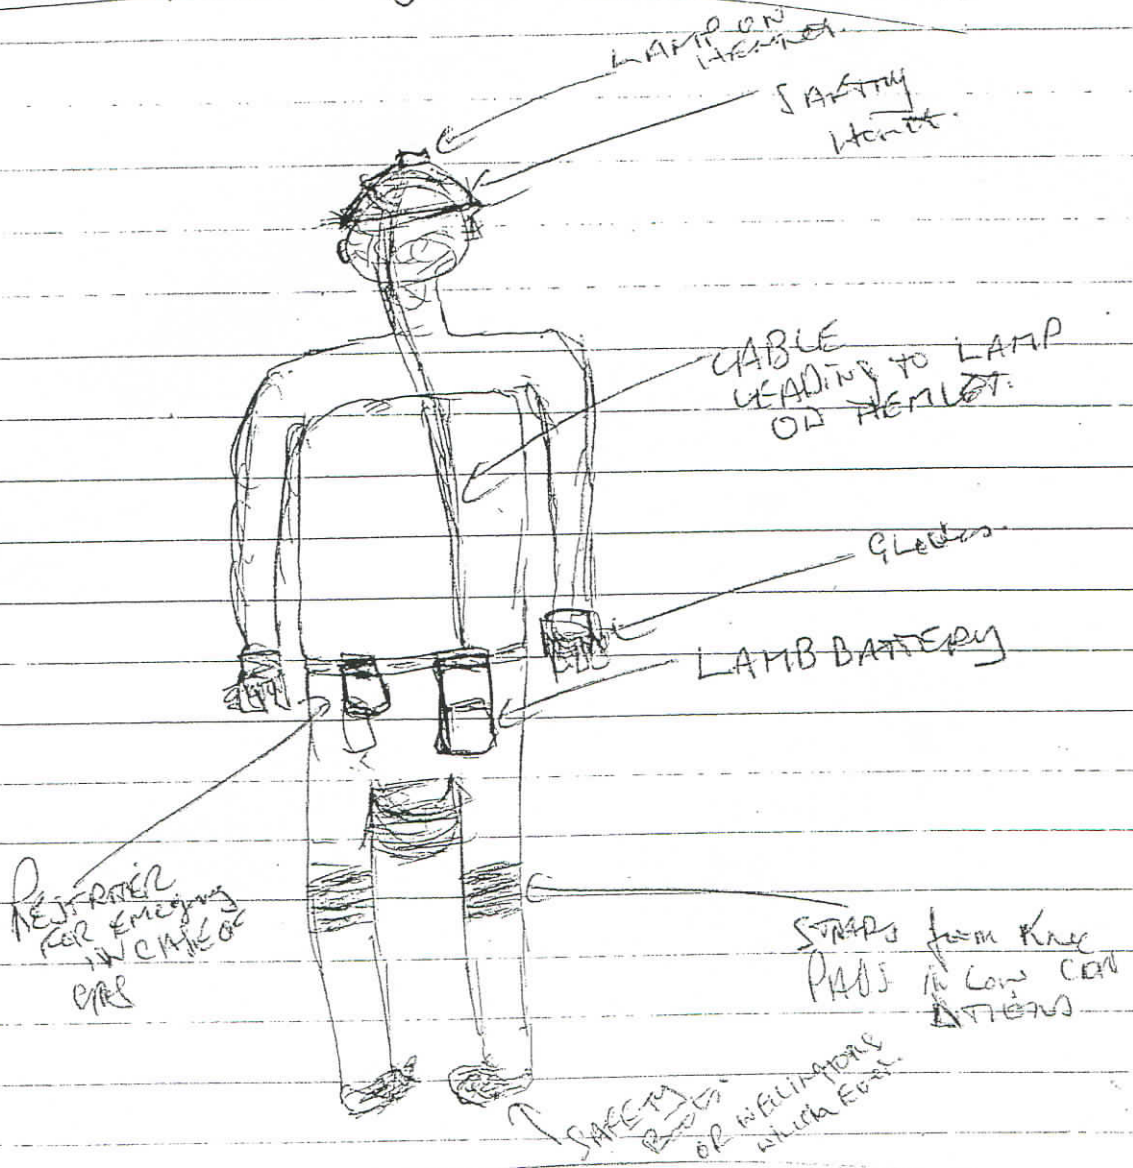 LAMP ON
HELMET.
SAFTTY
HELMET.
CABLE
LEADING TO LAMP
ON HEMLET.
GLOVES.
LAMB BATTERY
RESPRATER
FOR EMEGENY
IN CASE OF
GAS
STRAPS from Knee
PADS in Low CON
DITIONS
SAFETY
BOOTS.
OR WELLINGTONS
which Ever.